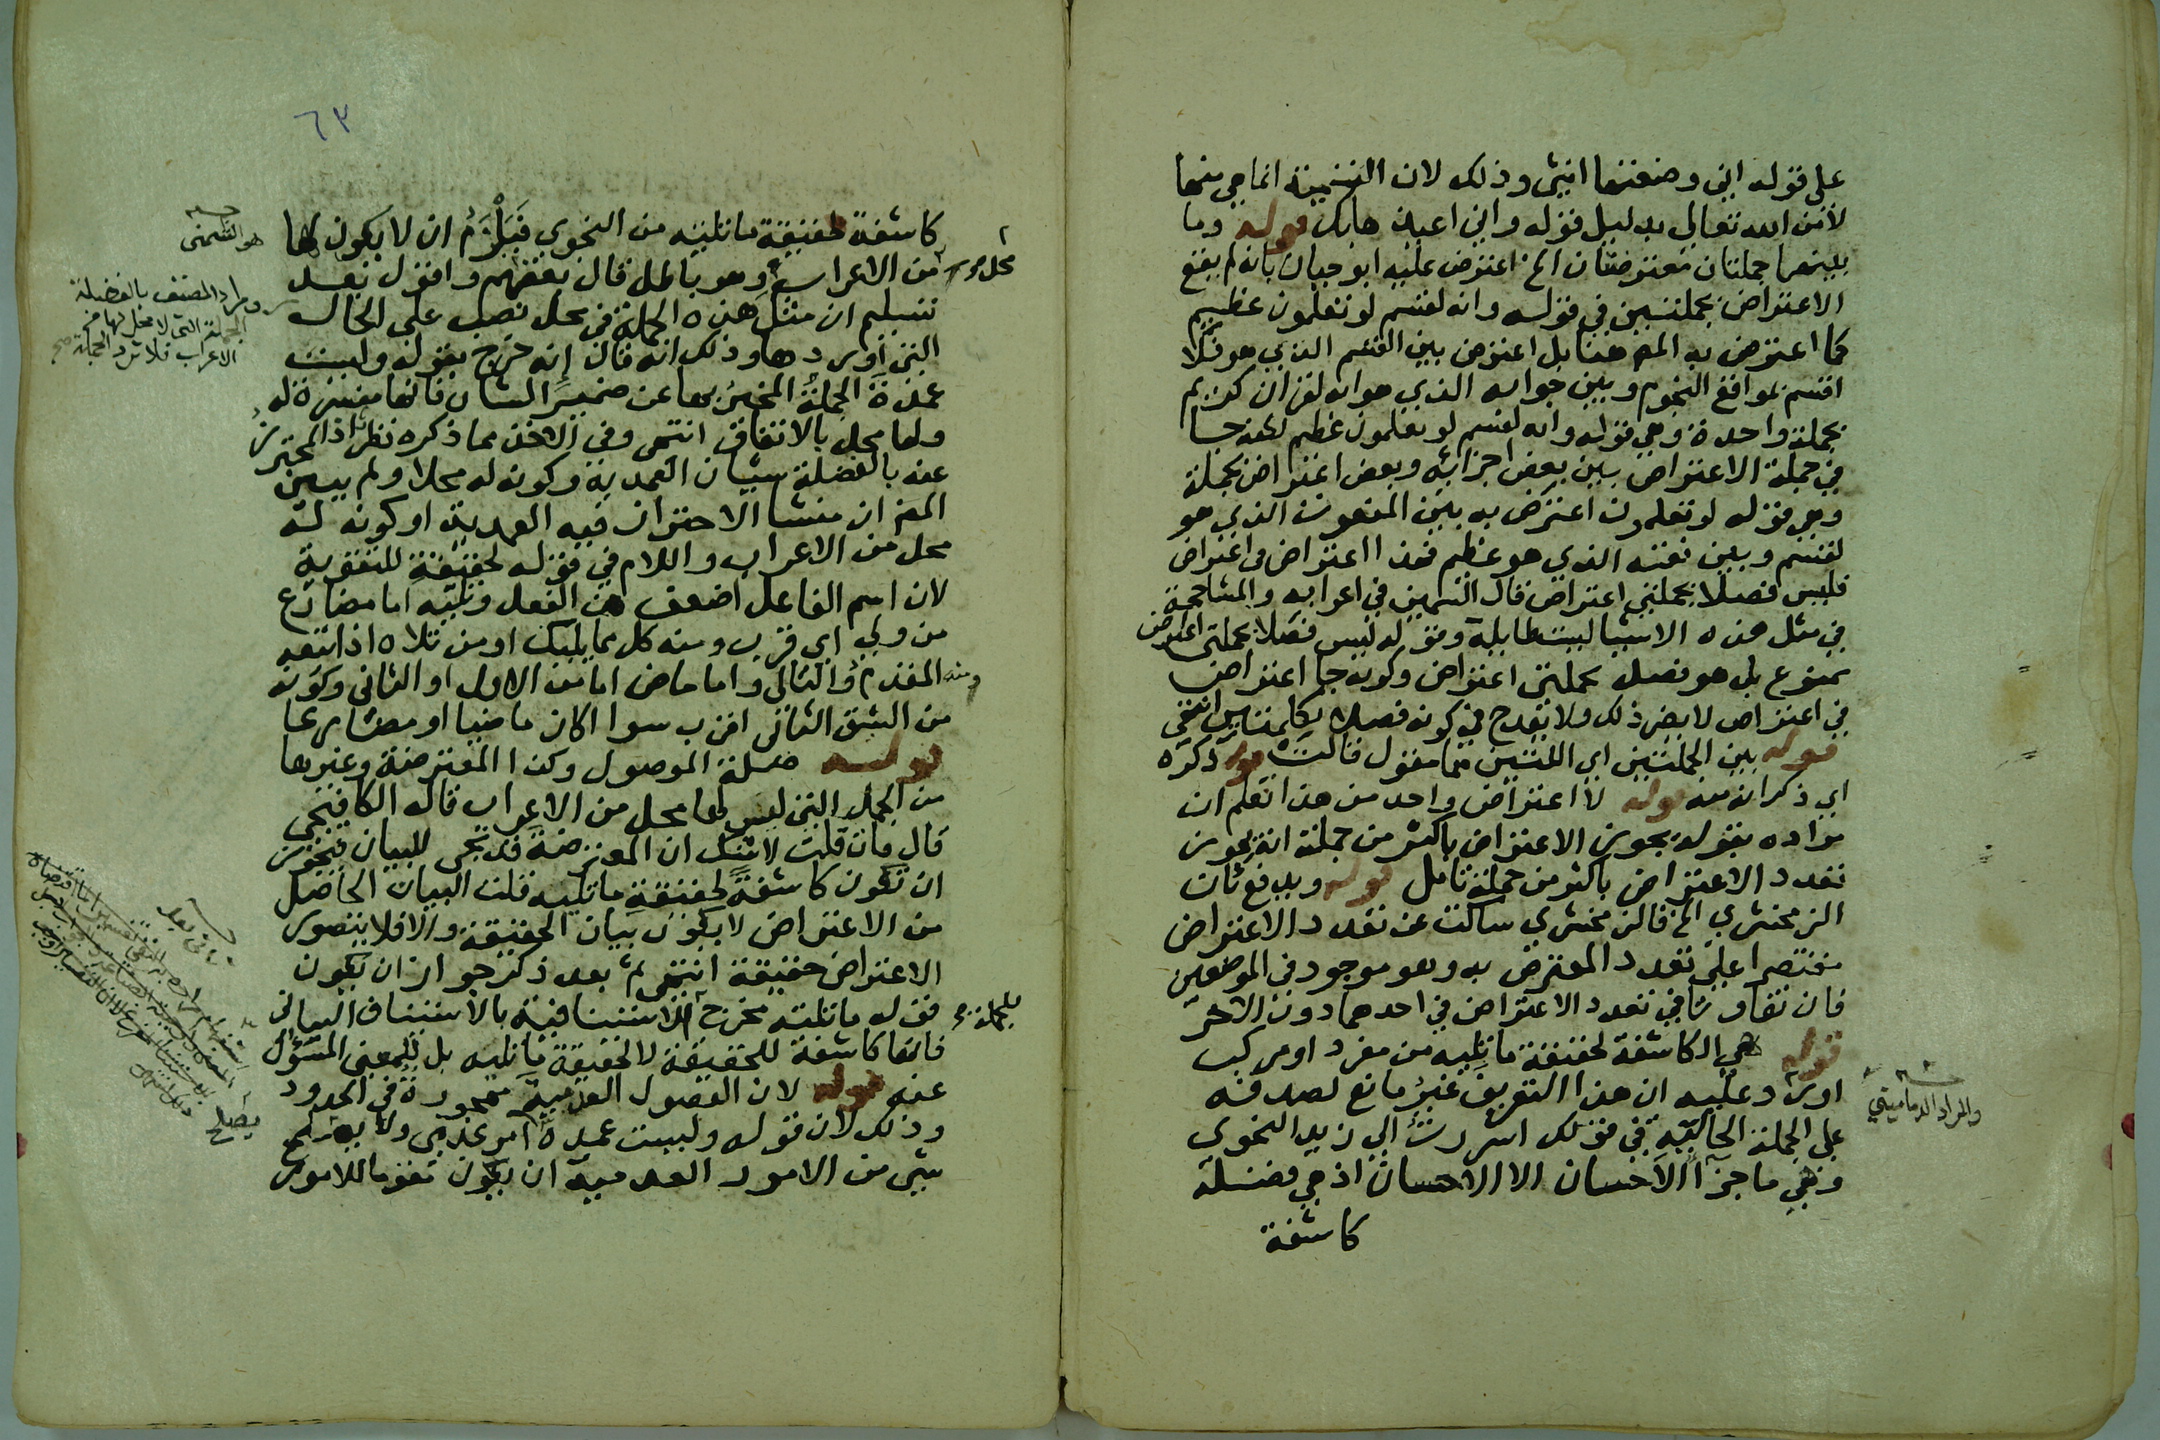 على قوله اني وضعتها انثى وذلك لان التسمية انما هي منها
لا من الله تعالى بدليل قوله واني اعيذها بك قوله وما
بينهما جملتان معترضتان الخ اعترض عليه ابو حيان بانه لم يقع
الاعتراض بجملتين في قوله وانه لقسم لو تعلمون عظيم
كما اعترض به المص هنا بل اعترض بين القسم الذي هو فلا
اقسم بمواقع النجوم وبين جوابه الذي هو انه لقران كريم
بجملة واحدة وهي قوله وانه لقسم لو تعلمون عظيم لكنه جا
في جملة الاعتراض بين بعض اجزائه وبعض اعتراض بجملة
وهي قوله لو تعلمون اعترض به بين المنعوت الذي هو
لقسم وبين نعته الذي هو عظيم فهذا اعتراض في اعتراض
فليس فصلا بجملتي اعتراض قال السمين في اعرابه والمشاححة
في مثل هذه الاشيا ليست طايلة وقوله ليس فصلا بجملتي اعتراض
ممنوع بل هو فصل بجملتي اعتراض وكونه جا اعتراض
في اعتراض لا يضر ذلك ولا يقدح في كونه فصلا بكلمتين انتهى
قوله بين الجملتين اي اللتين هما مقول قالت قوله ذكره
اي ذكر انه منه قوله لا اعتراض واحد من هذا تعلم ان
مراده بقوله يجوز الاعتراض باكثر من جملة انه يجوز
تعدد الاعتراض باكثر من جملة تامل قوله ويدفع بان
الزمخشري الخ فالزمخشري ساكت عن تعدد الاعتراض
مقتصرا على تعدد المعترض به وهو موجود في الموضعين
فان تفاوتا في تعدد الاعتراض في احدهما دون الاخر
قوله هي الكاشفة لحقيقة ما تليه من مفرد او مركب
اورد عليه ان هذا التعريف غير مانع لصدقه
على الجملة الحالية في قولك اسررت الى زيد النجوى
وهي ما جزآ الاحسان الا الاحسان اذ هي فضلة
كاشفة
والمراد الدماميني
٦٣
كاشفة لحقيقة ما تليه من النجوى فيَلْزَمُ ان لا يكون لها
محل
من الاعراب وهو باطل قال بعضهم واقول بعد
تسليم ان مثل هذه الجملة في محل نصب على الحال
التي اوردها وذلك انه قال إنه خرج بقوله وليست
عمدة الجملة المخبر بها عن ضمير الشان فانها مفسرة له
ولها محل بالاتفاق انتهى وفي الاخذ مما ذكره نظر اذ المحترز
عنه بالفضلة شيئان العمدية وكونه له محلا ولم يبين
المص ان منشا الاحتراز فيه العمدية او كونه له
محل من الاعراب واللام في قوله لحقيقة للتقوية
لان اسم الفاعل اضعف من الفعل وتليه اما مضارع
من ولي اي قرب ومنه كل مما يليك او من تلاه اذا تبعه
ومنه المقدم والتالي واما ماض اما من الاول او الثاني وكونه
من الشق الثاني اقرب سوا اكان ماضيا او مضارعا
قوله صلة الموصول وكذا المعترضة وغيرها
من الجمل التي ليس لها محل من الاعراب قاله الكافيجي
قال فان قلت لا شك ان المعترضة قد تجي للبيان فيجوز
ان تكون كاشفةً لحقيقةِ ما تليه قلت البيان الحاصل
من الاعتراض لا يكون بيان الحقيقة والا فلا يتصور
الاعتراض حقيقة انتهى ثم بعد ذكر جواز ان يكون
قوله ما تلته مخرج الاستئنافية بالاستئناف البياني
للجملة
فانها كاشفة للحقيقة لا لحقيقة ما تليه بل للمعنى المسؤل
عنه قوله لان الفصول العدمية مهجورة في الحدود
وذلك لان قوله وليست عمدة امر عدمي ولا يصلح
شي من الامور العدمية ان يكون مقوما للامور
هو الشمني
ومراد المصنف بالفضلة
الجملة التي لا محل لها من
الاعراب فلا ترد الجملة صح
يصلح